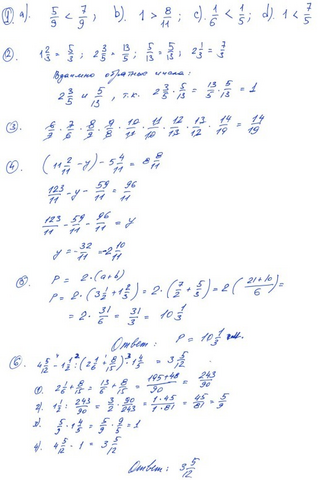 1) a). 5/9 < 7/9; b). 1 > 8/11; c). 1/6 < 1/5; d). 1 < 7/5
2. 1 2/3 = 5/3; 2 3/5 = 13/5; 5/13 = 5/13; 2 1/3 = 7/3
Взаимно обратные числа:
2 3/5 и 5/13, т.к. 2 3/5 · 5/13 = 13/5 · 5/13 = 1
3. 6/7 · 7/8 · 8/9 · 9/10 · 10/11 · 11/12 · 12/13 · 13/14 · 14/19 = 14/19
4. (11 2/11 - y) - 5 4/11 = 8 8/11
123/11 - y - 59/11 = 96/11
123/11 - 59/11 - 96/11 = y
y = -32/11 = -2 10/11
5. P = 2·(a+b)
P = 2·(3 1/2 + 1 2/3) = 2·(7/2 + 5/3) = 2(21+10/6) =
= 2 · 31/6 = 31/3 = 10 1/3
Ответ: P = 10 1/3 см.
6. 4 5/12 - 1 1/2 : (2 1/6 + 8/15) · 1 4/5 = 3 5/12
1). 2 1/6 + 8/15 = 13/6 + 8/15 = 195+48/90 = 243/90
2). 1 1/2 : 243/90 = 3/2 · 90/243 = 1·45/1·81 = 45/81 = 5/9
3). 5/9 · 1 4/5 = 5/9 · 9/5 = 1
4). 4 5/12 - 1 = 3 5/12
Ответ: 3 5/12